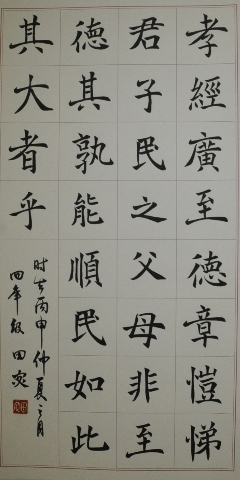 孝經廣至德章愷悌
君子民之父母非至
德其孰能順民如此
其大者乎
時在丙申仲夏之月
四年級田宛